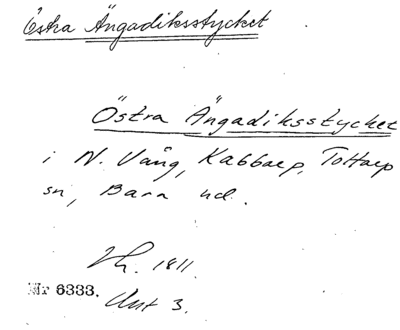 Östra Ängadiksstycket
Östra Ängadiksstycket
i N. Vång, Kabbarp, Tottarp
sn, Bara hd.
1811.
Nr 6333.
3.